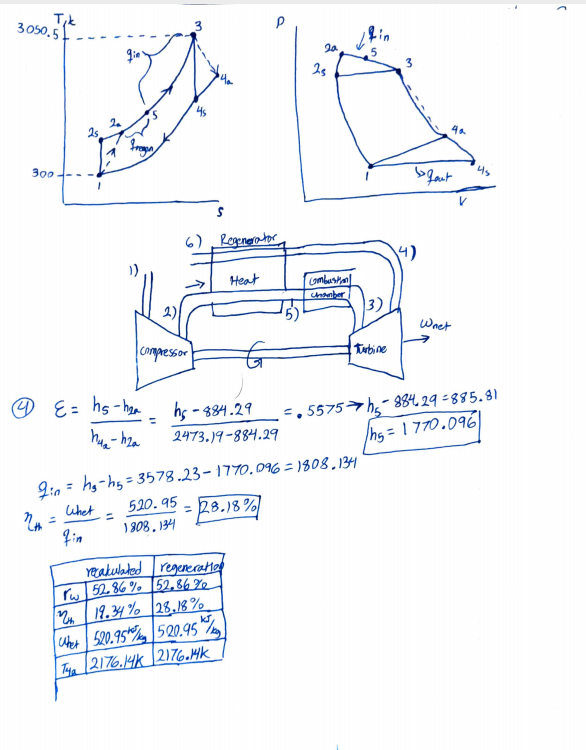 T,k
3050.5
3
qin
4a
5
4s
2a
2s
qregen
300
1
s
P
qin
2a
5
2s
3
4a
1
qout
4s
V
6) Regenerator
4)
1)
Heat
combustion
chamber
2)
5)
3)
wnet
compressor
Turbine
④ ε = h5-h2a / h4a-h2a = h5-884.29 / 2473.19-884.29 = .5575 → h5-884.29=885.81
h5=1770.096
qin = h3-h5=3578.23-1770.096=1808.134
ηth = wnet / qin = 520.95 / 1808.134 = 28.18%
recakulated regeneration
rw 52.86% 52.86%
ηth 19.34% 28.18%
wnet 520.95 kJ/kg 520.95 kJ/kg
T4a 2176.14K 2176.14K